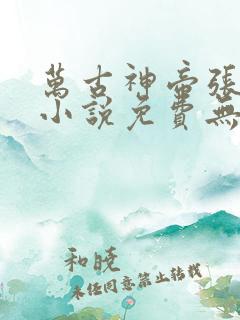 萬古神帝張
小說免費無
和曉
未经同意禁止转载